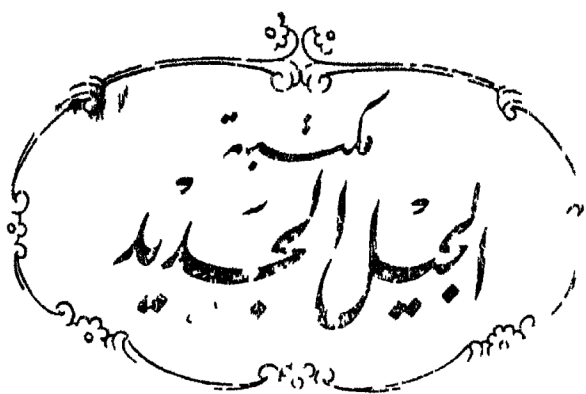 مكتبة
الجيل الجديد